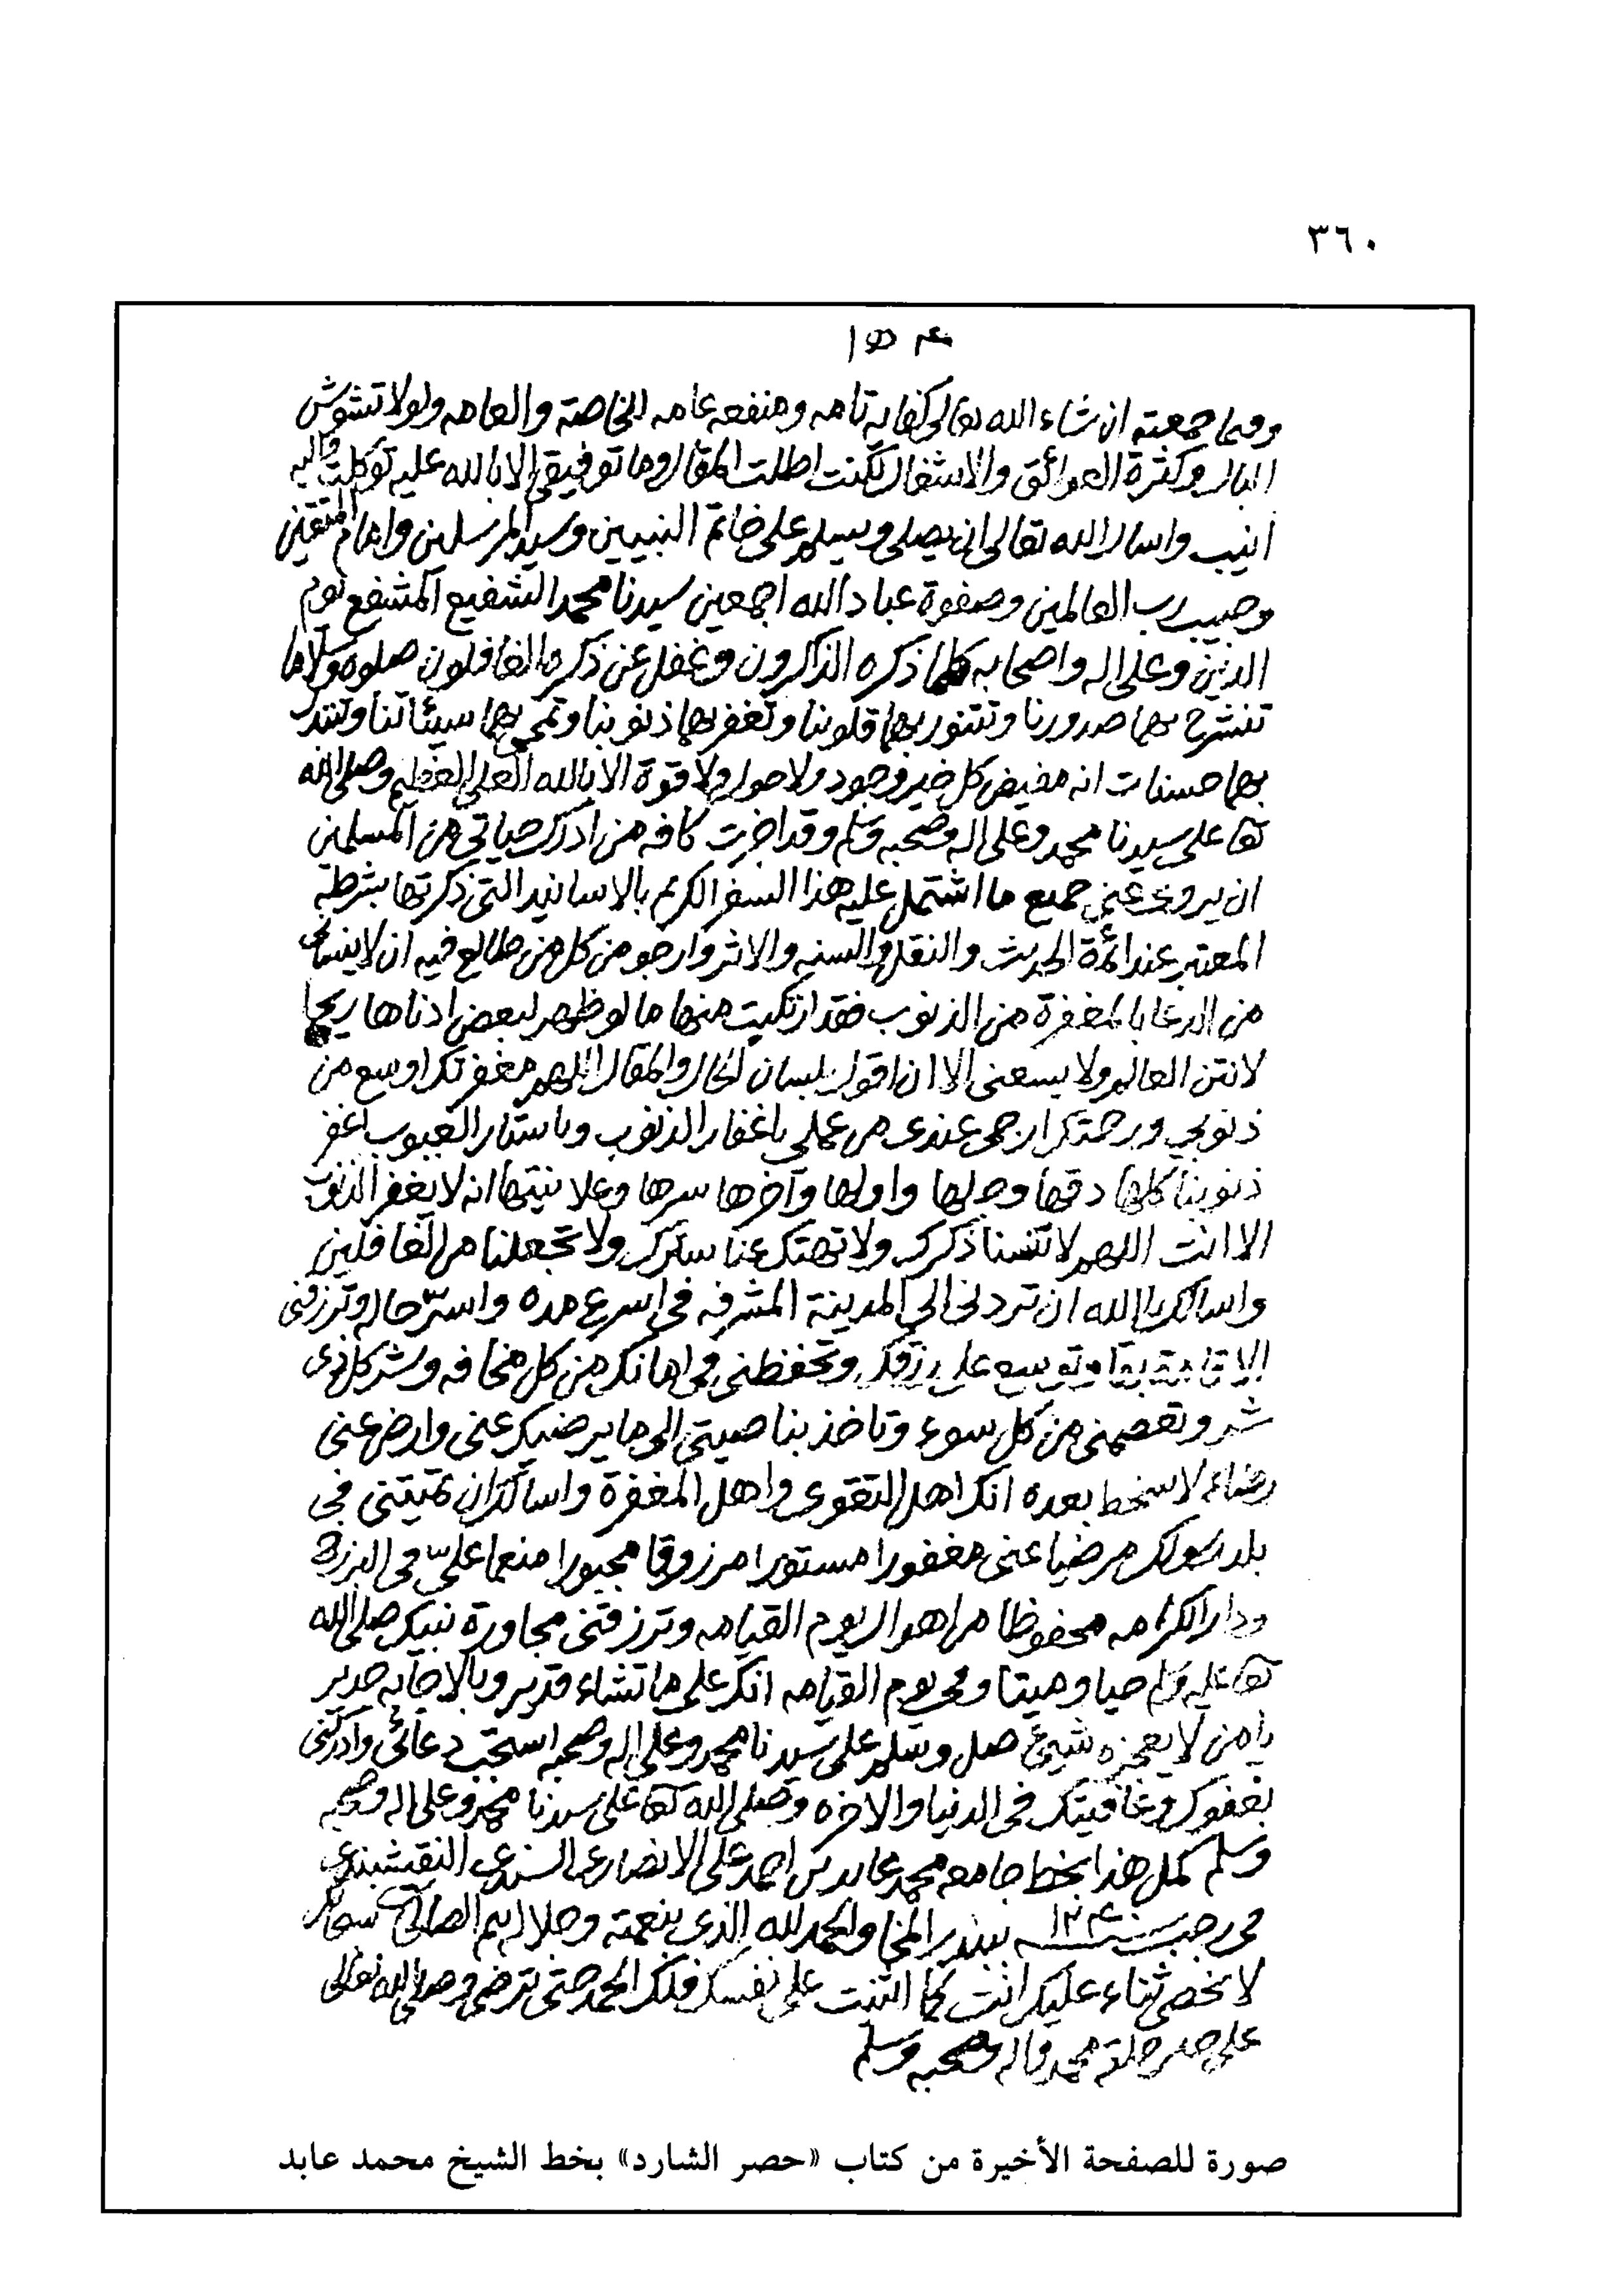 ٣٦٠
وفيما جمعته ان شاء الله تعالى كفاية تامه ومنفعه عامه للخاصة والعامه ولولا تشوش
البال وكثرة العوائق والاشغال لكنت اطلت المقال وما توفيقي الا بالله عليه توكلت واليه
انيب واسال الله تعالى ان يصلى ويسلم على خاتم النبيين وسيد المرسلين وامام المتقين
وحبيب رب العالمين وصفوة عباد الله اجمعين سيدنا محمد الشفيع المشفع يوم
الدين وعلى اله واصحابه كلما ذكره الذاكرون وغفل عن ذكره الغافلون صلوة وسلاما
تنشرح بهما صدورنا وتتنور بهما قلوبنا وتغفر بهما ذنوبنا وتمحى بهما سيئاتنا وتتبدل
بهما حسنات انه مفيض كل خير وجود ولا حول ولا قوة الا بالله العلي العظيم وصلى الله
تعا على سيدنا محمد وعلى اله وصحبه وسلم وقد اجزت كافه من ادرك حياتي من المسلمين
ان يروى عني جميع ما اشتمل عليه هذا السفر الكريم بالاسانيد التي ذكرتها بشرطه
المعتبر عند ائمة الحديث والنقل والسنه والاثر وارجو من كل من طالع فيه ان لا ينسانى
من الدعا بالمغفرة من الذنوب فقد ارتكبت منها ما لو ظهر لبعض ادناها ريحا
لانتن العالم ولا يسعنى الا ان اقول بلسان الحال والمقال اللهم مغفرتك اوسع من
ذنوبي ورحمتك ارجى عندى من عملى يا غفار الذنوب ويا ستار العيوب اغفر
ذنوبنا كلها دقها وجلها واولها وآخرها سرها وعلانيتها انه لا يغفر الذنوب
الا انت اللهم لا تنسنا ذكرك ولا تهتك عنا سترك ولا تجعلنا من الغافلين
واسالك يا الله ان تردنى الى المدينة المشرفه فى اسرع مده واسر حاله وترزقنى
الاقامة بها وتوسع على رزقك وتحفظنى فى امانك من كل مخافه وشر كل ذى
شر وتعصمنى من كل سوء وتاخذ بناصيتى الى ما يرضيك عنى وارض عنى
رضاء لا سخط بعده انك اهل التقوى واهل المغفرة واسالك ان تميتنى فى
بلد رسولك مرضيا عنى مغفورا مستورا مرزوقا مجبورا منعما على فى البرزخ
ودار الكرامه محفوظا من اهوال يوم القيامه وترزقنى مجاورة نبيك صلى الله
تعا عليه وسلم حيا وميتا وفى يوم القيامه انك على ما تشاء قدير وبالاجابه جدير
يا من لا يعجزه شيئ صل وسلم على سيدنا محمد وعلى اله وصحبه استجب دعائى وادركنى
بعفوك وعافيتك فى الدنيا والاخره وصلى الله تعا على سيدنا محمد وعلى اله وصحبه
وسلم كمل هذا بخط جامعه محمد عابد بن احمد على الانصارى السندى النقشبندى
فى رجب سنه ١٢٤٠ ببندر المخا والحمد لله الذى بنعمته وجلاله يتم الصالحات سبحانك
لا نحصى ثناء عليك انت كما اثنيت على نفسك فلك الحمد حتى ترضى وصلى الله تعالى
على خير خلقه محمد واله وصحبه وسلم
صورة للصفحة الأخيرة من كتاب «حصر الشارد» بخط الشيخ محمد عابد